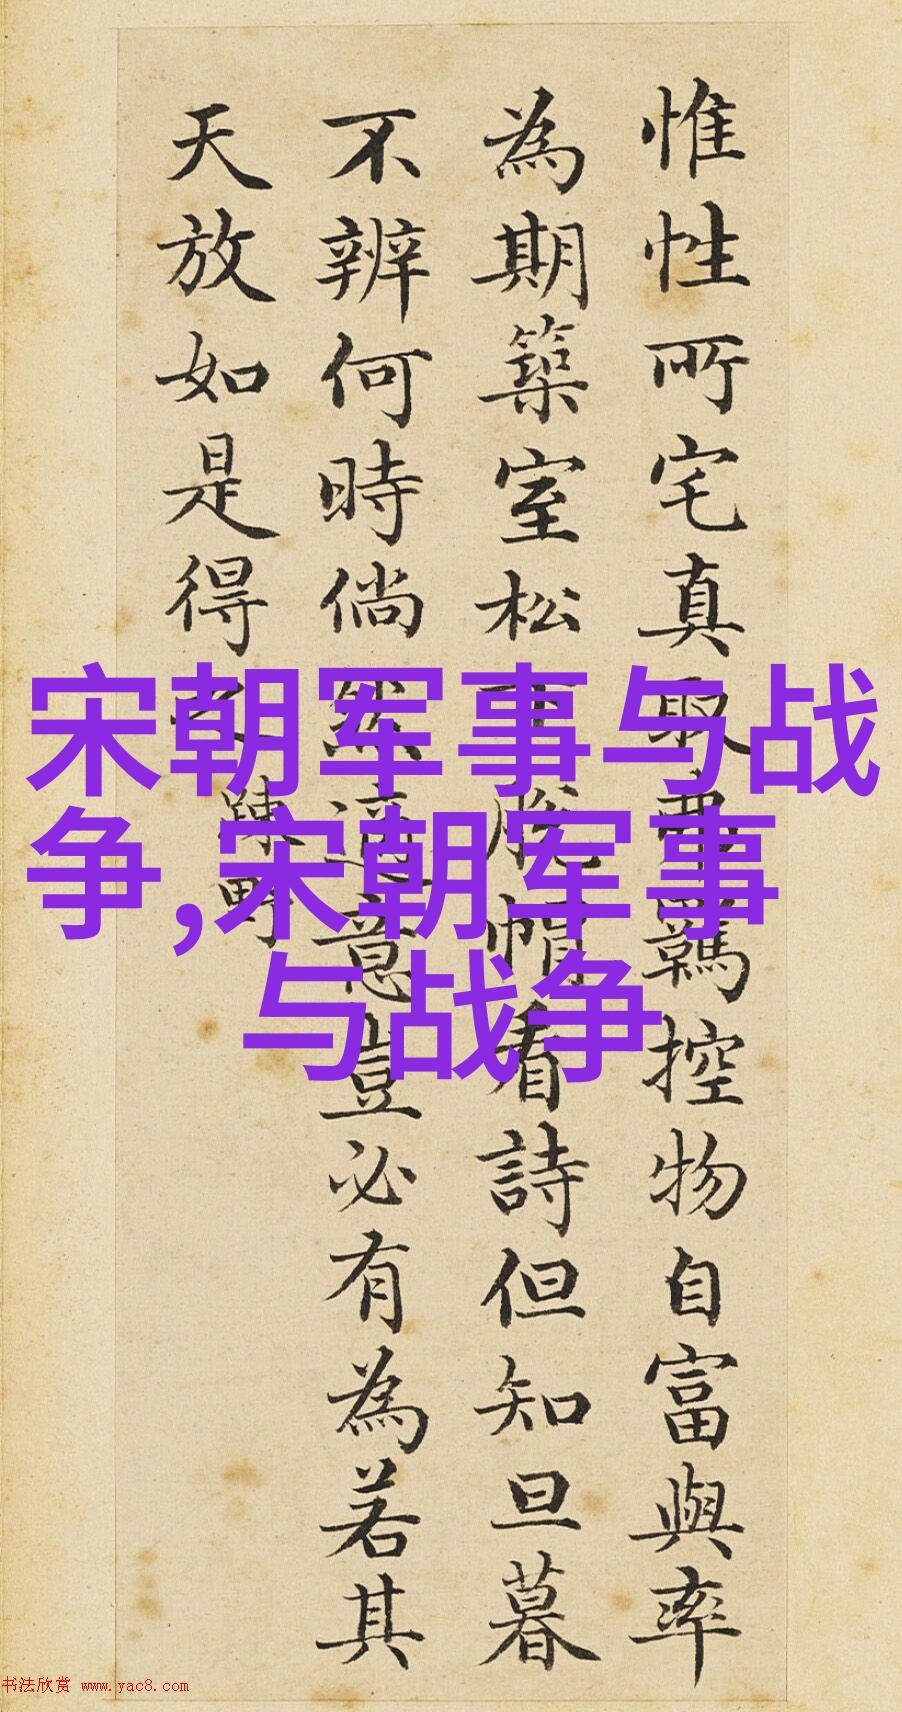 惟性所宅真取弗羈控物自富與率
為期築室松下脫帽看詩但知旦暮
不辨何時倘然適意豈必有為若其
天放如是得之
踈野
宋朝军事与战
争,宋朝军事
与战争
书法欣赏 www.yac8.com